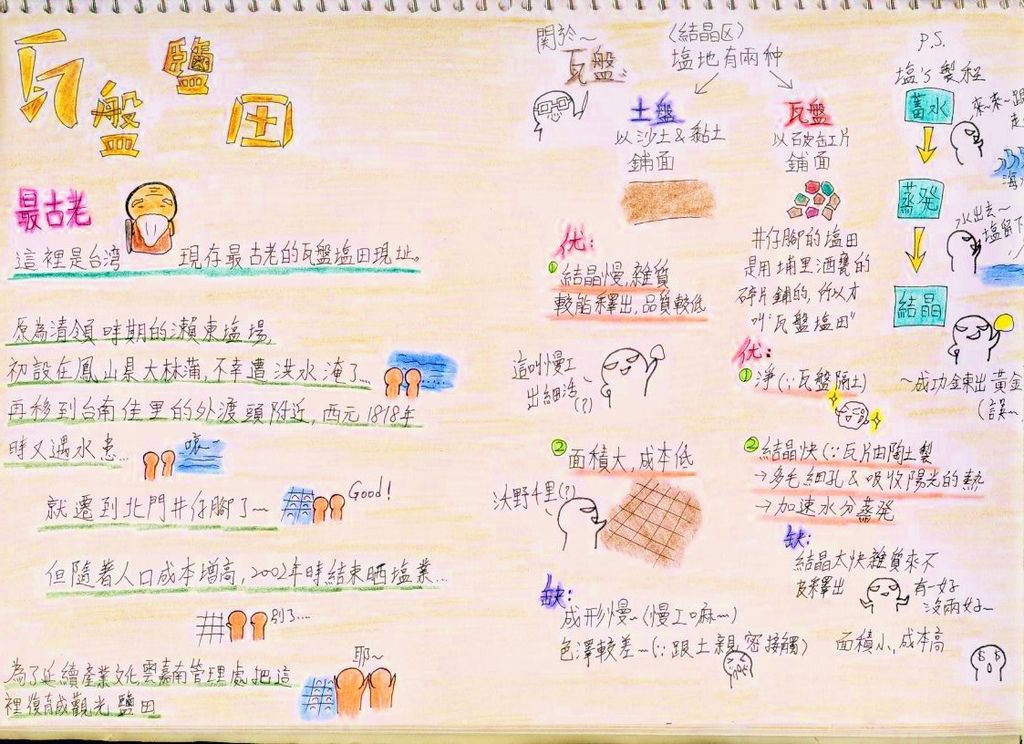 瓦盤鹽田
最古老
這裡是台湾 現存最古老的瓦盤塩田現址。
原為清領時期的瀨東塩場,
初設在鳳山県大林蒲,不幸遭洪水淹了...
再移到台南佳里的外渡頭附近,西元1818年
時又遇水患...
咳~
就遷到北門井仔腳了~
Good!
但隨著人口成本增高,2002年時結束晒塩業...
別了...
為了延續產業文化雲嘉南管理處把這
裡復育成觀光鹽田
耶~
關於~
瓦盤
〈結晶区〉
塩地有兩种
土盤
以沙土&黏土
鋪面
优:
①結晶慢,雜質
較能釋出,品質較低
這叫慢工
出細活(?)
②面積大,成本低
沃野千里(?)
缺:
成形慢~(慢工嘛~)
色澤較差~(∵跟土親密接觸)
瓦盤
以破缸片
鋪面
井仔腳的塩田
是用埔里酒甕的
碎片鋪的,所以才
叫"瓦盤塩田"
优:
①淨(∵瓦盤隔土)
②結晶快(∵瓦片由陶土製
→多毛細孔&吸收陽光的熱
→加速水分蒸発
缺:
結晶太快雜質來不
及釋出
有一好
沒兩好~
面積小,成本高
P.S.
塩's製程
蓄水
來~來~跟
蒸発
水出去~
塩留下
結晶
~成功金東出黃金
(誤~